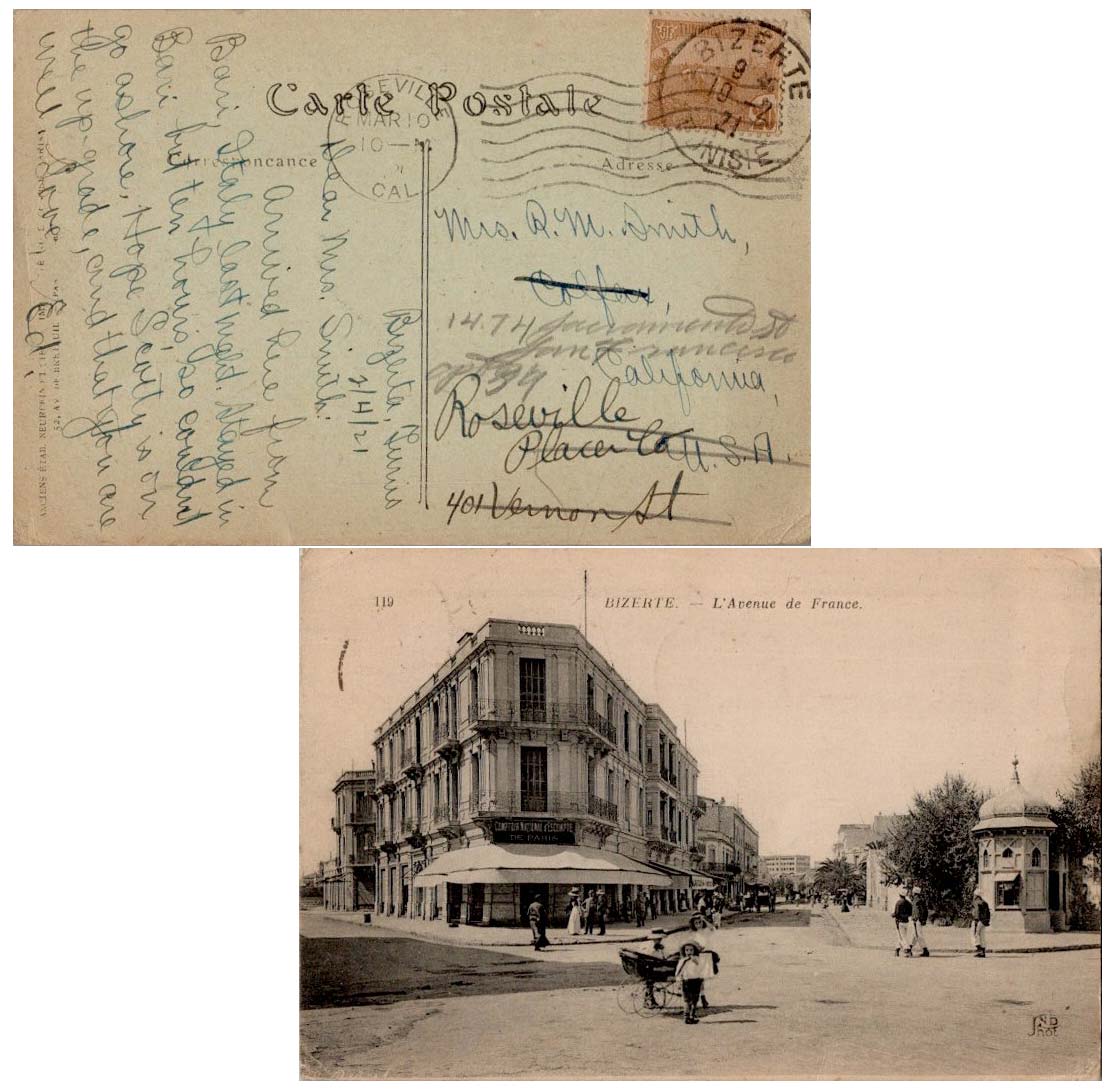 Carte Postale
Correspondance
Adresse
BIZERTE
9 *
19 - 2
21
TUNISIE
ROSEVILLE
MAR 10
10 - M
CAL
Bizerta, Tunis
2/4/21
Dear Mrs. Smith:
Arrived here from
Bari, Italy last night. Stayed in
Bari but ten hours, so couldn't
go ashore, Hope Scotty is on
the up-grade, and that you are
well also. Ed.
Mrs. R. M. Smith,
Colfax,
1474 Sacramento St
San Francisco
apt
California,
Roseville
Placer Co
U.S.A.
401 Vernon St
ANCIENS ÉTAB. NEURDEIN ET CIE
52, AV. DE BRETEUIL
119
BIZERTE. — L'Avenue de France.
COMPTOIR NATIONAL D'ESCOMPTE
DE PARIS
ND
Phot